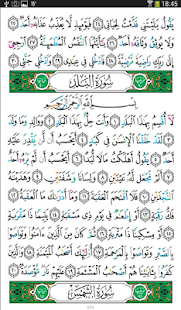 18:45
يَقُولُ يَٰلَيْتَنِى قَدَّمْتُ لِحَيَاتِى ٢٤ فَيَوْمَئِذٍ لَّا يُعَذِّبُ عَذَابَهُۥٓ أَحَدٌ ٢٥
وَلَا يُوثِقُ وَثَاقَهُۥٓ أَحَدٌ ٢٦ يَٰٓأَيَّتُهَا ٱلنَّفْسُ ٱلْمُطْمَئِنَّةُ ٢٧ ٱرْجِعِىٓ
إِلَىٰ رَبِّكِ رَاضِيَةً مَّرْضِيَّةً ٢٨ فَٱدْخُلِى فِى عِبَٰدِى ٢٩ وَٱدْخُلِى جَنَّتِى ٣٠
سُورَةُ الْبَلَدِ
بِسْمِ ٱللَّهِ ٱلرَّحْمَٰنِ ٱلرَّحِيمِ
لَآ أُقْسِمُ بِهَٰذَا ٱلْبَلَدِ ١ وَأَنتَ حِلٌّۢ بِهَٰذَا ٱلْبَلَدِ ٢ وَوَالِدٍ وَمَا وَلَدَ ٣
لَقَدْ خَلَقْنَا ٱلْإِنسَٰنَ فِى كَبَدٍ ٤ أَيَحْسَبُ أَن لَّن يَقْدِرَ عَلَيْهِ أَحَدٌ ٥
يَقُولُ أَهْلَكْتُ مَالًا لُّبَدًا ٦ أَيَحْسَبُ أَن لَّمْ يَرَهُۥٓ أَحَدٌ ٧ أَلَمْ نَجْعَل
لَّهُۥ عَيْنَيْنِ ٨ وَلِسَانًا وَشَفَتَيْنِ ٩ وَهَدَيْنَٰهُ ٱلنَّجْدَيْنِ ١٠
فَلَا ٱقْتَحَمَ ٱلْعَقَبَةَ ١١ وَمَآ أَدْرَىٰكَ مَا ٱلْعَقَبَةُ ١٢ فَكُّ رَقَبَةٍ ١٣
أَوْ إِطْعَٰمٌ فِى يَوْمٍ ذِى مَسْغَبَةٍ ١٤ يَتِيمًا ذَا مَقْرَبَةٍ ١٥
أَوْ مِسْكِينًا ذَا مَتْرَبَةٍ ١٦ ثُمَّ كَانَ مِنَ ٱلَّذِينَ ءَامَنُوا۟ وَتَوَاصَوْا۟
بِٱلصَّبْرِ وَتَوَاصَوْا۟ بِٱلْمَرْحَمَةِ ١٧ أُو۟لَٰٓئِكَ أَصْحَٰبُ ٱلْمَيْمَنَةِ ١٨
وَٱلَّذِينَ كَفَرُوا۟ بِـَٔايَٰتِنَا هُمْ أَصْحَٰبُ ٱلْمَشْـَٔمَةِ ١٩ عَلَيْهِمْ نَارٌ مُّؤْصَدَةٌۢ ٢٠
سُورَةُ الشَّمْسِ